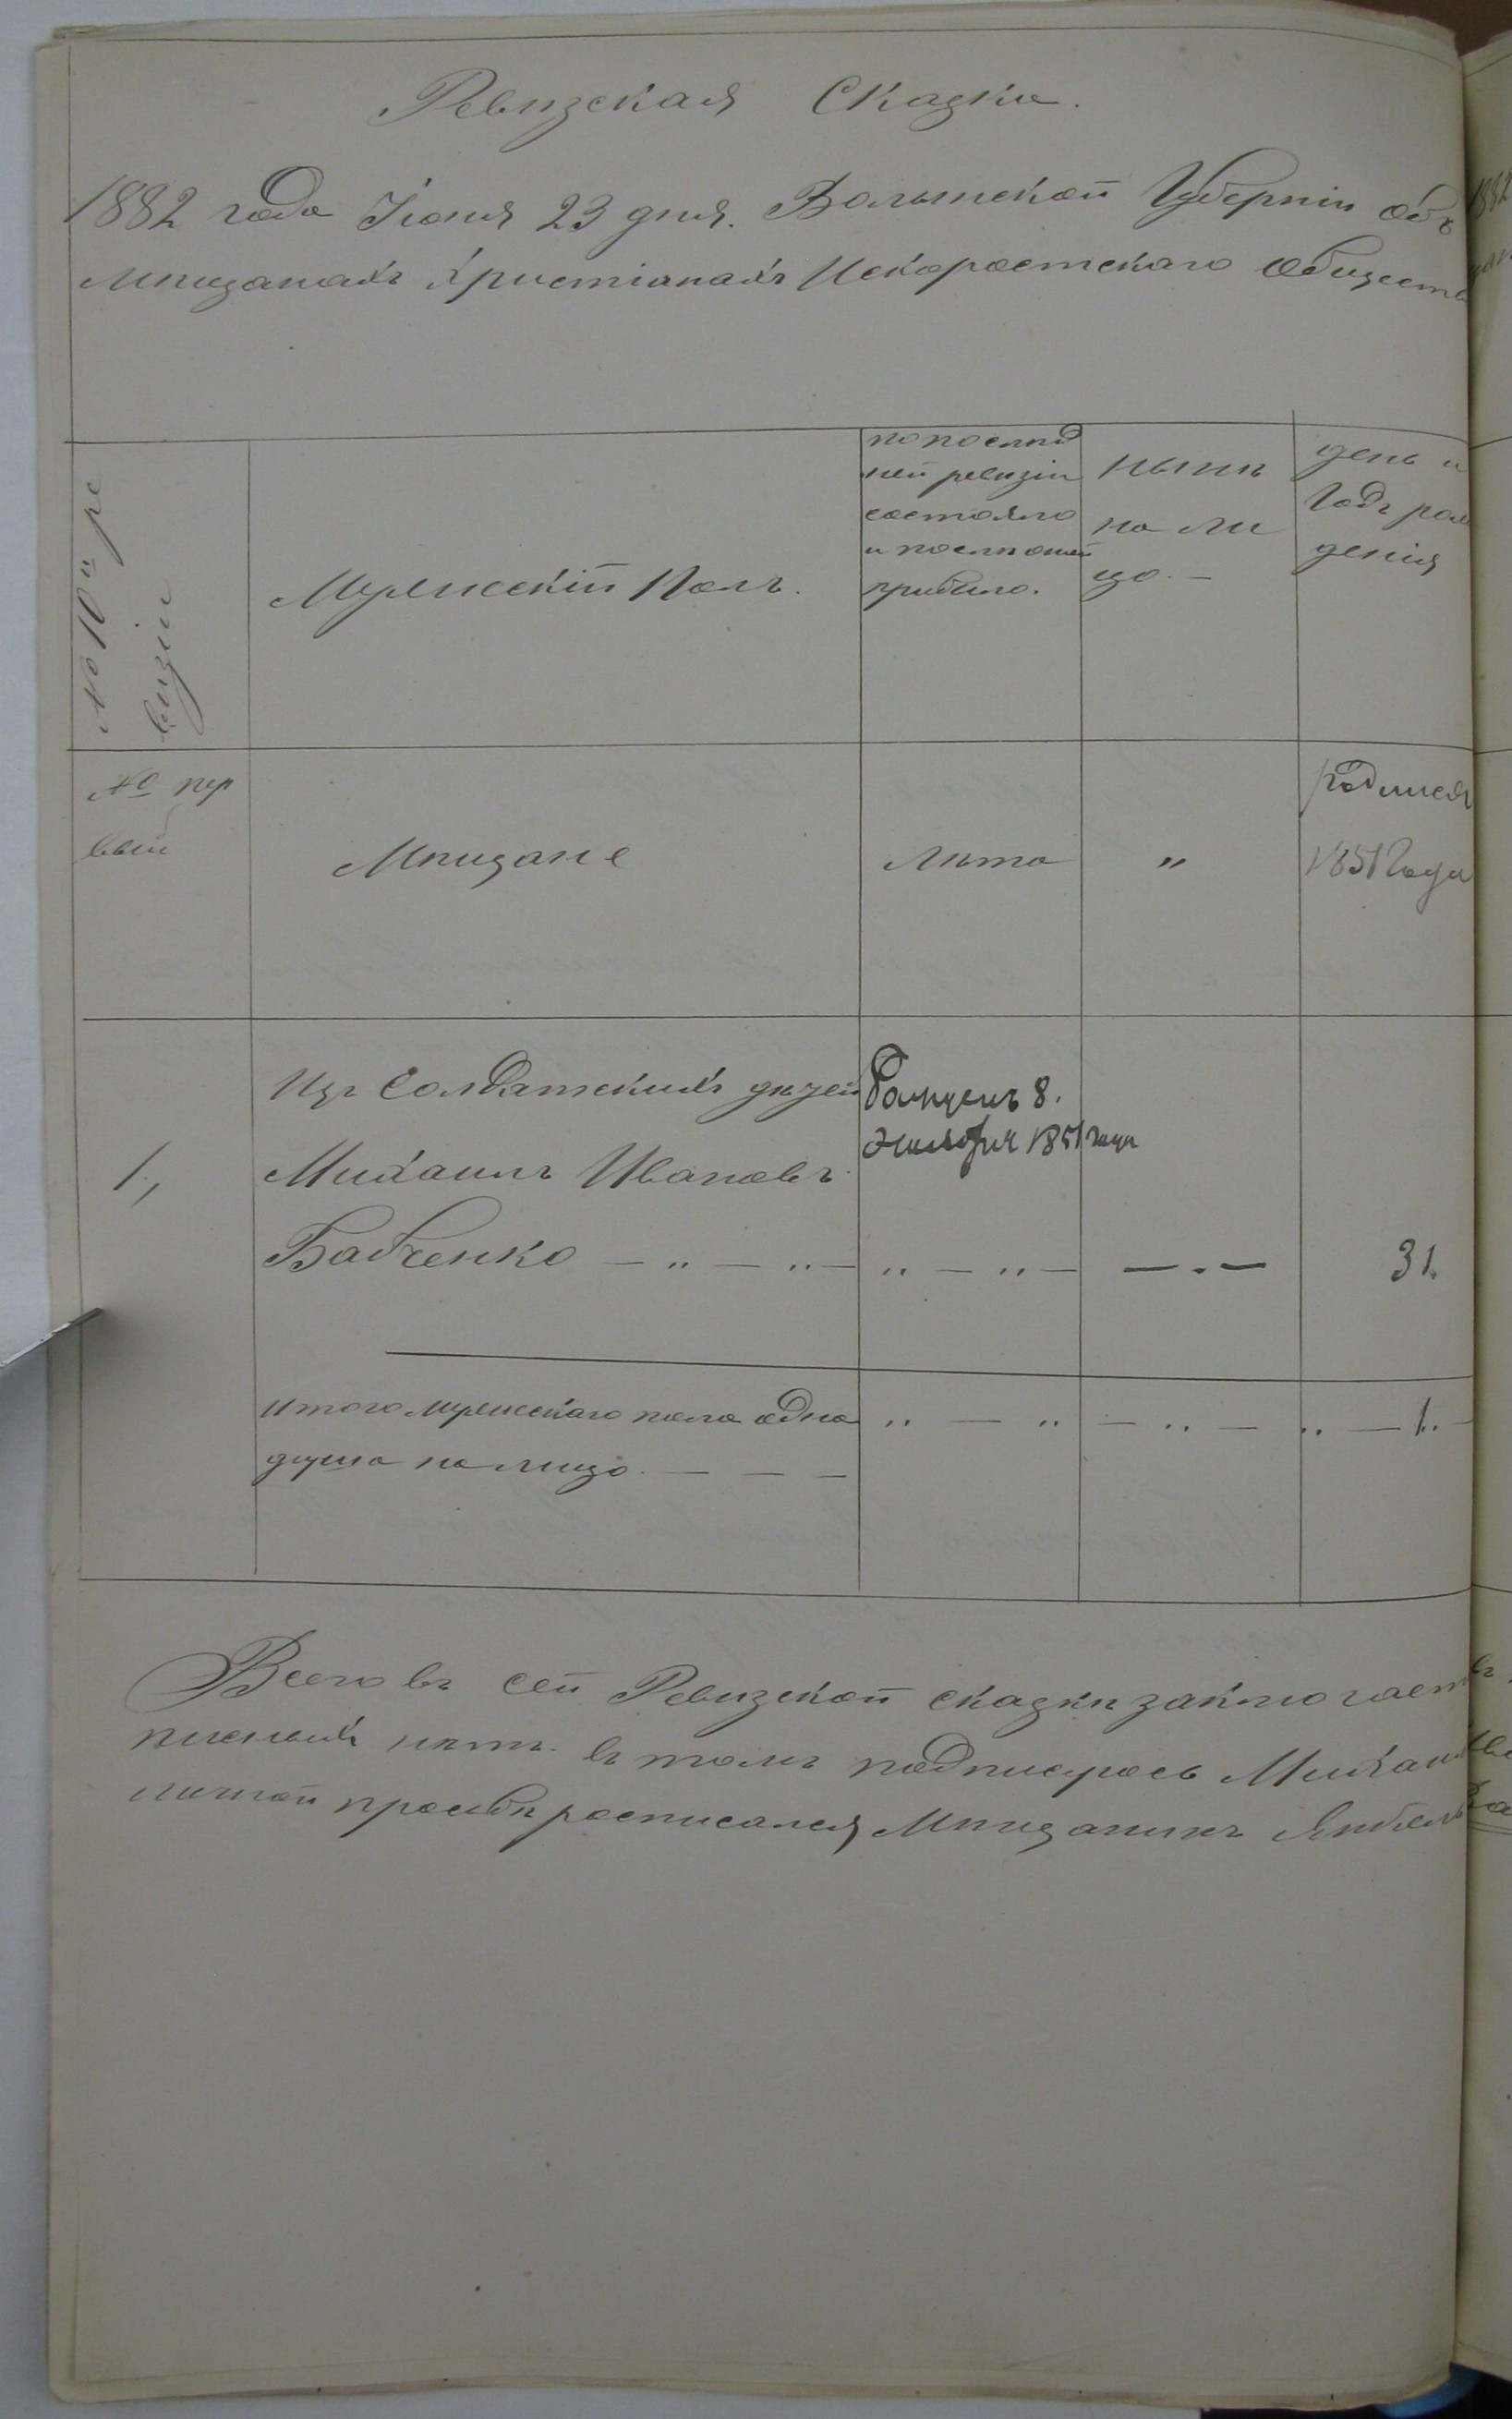 Ревизская Сказка.
1882 года Іюня 23 дня. Волынской Губерніи объ
мѣщанахъ Христіанахъ Искоростскаго Обществ
№ 10й ре
визіи
Мужескій Полъ.
по послѣд
ней ревизіи
состояло
и послѣ оной
прибыло.
нынѣ
на ли
цо. —
день и
Годъ рож
денія
№ пер
вый
Мѣщане
Лѣта
"
родился
1851 Года
Изъ Солдатскихъ дѣтей
8.
1851 года
1.,
Михаилъ Ивановъ
Бабченко — „ — „ — „ — „ — — . — 31.
итого мужескаго пола одна „ — „ — „ — „ — 1. —
душа на лицо. — — —
Всего въ сей Ревизской сказкѣ заключает
нѣтъ. въ томъ подписуюсь Михаил
личной просьбѣ росписался Мѣщанинъ